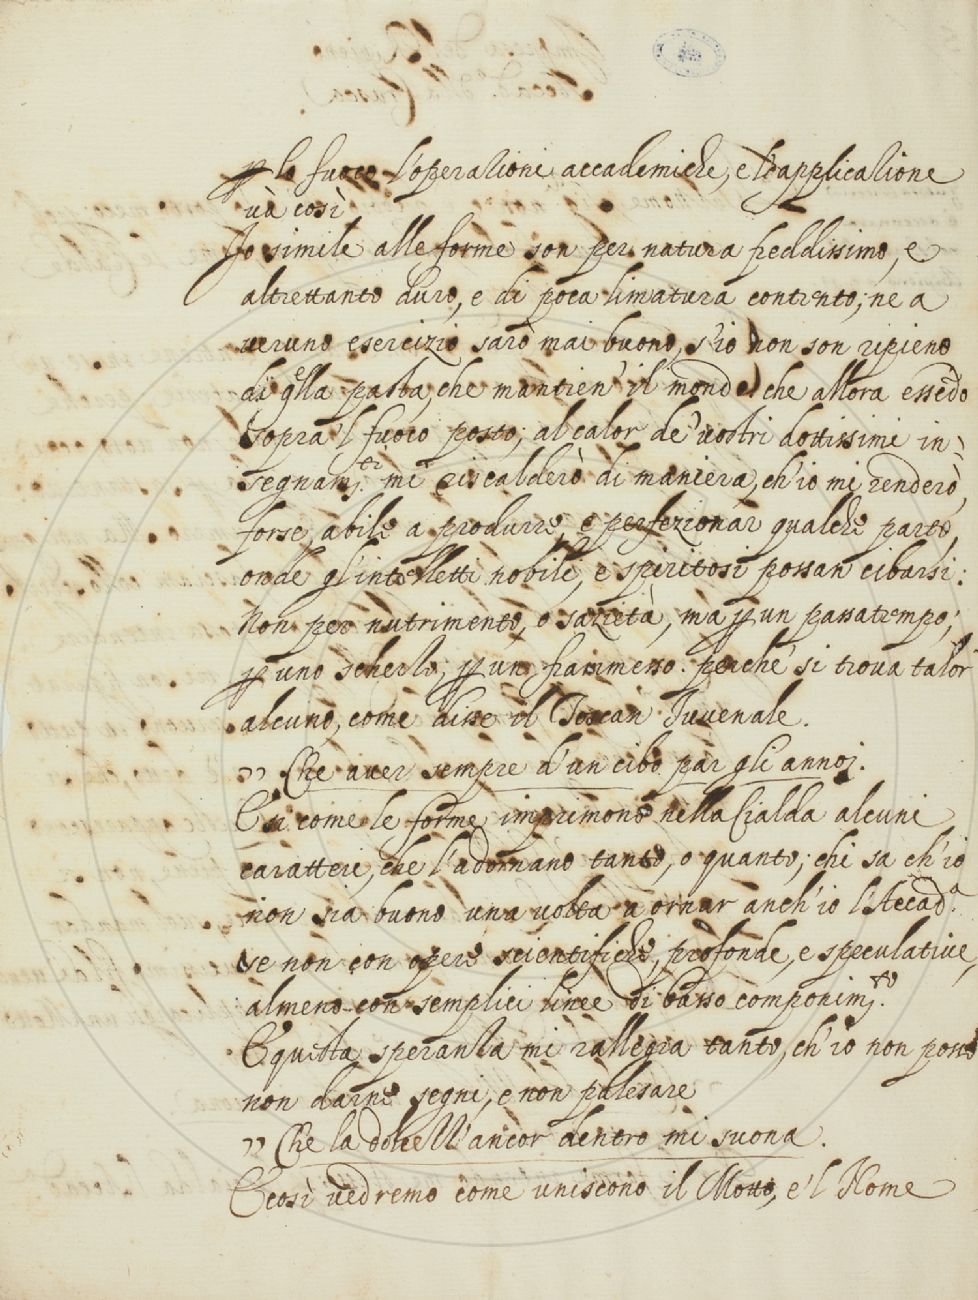 p lo fuoco l'operazioni accademiche, e l'applicazione
và così
Io simile alle forme son per natura freddissimo, e
altrettanto duro, e di poca limatura contento; ne a
veruno esercizio sarò mai buono, s'io non son ripieno
di qlla pasta, che mantien' il mondo che allora essēdo
sopra 'l fuoco posto, al calor de' vostri dottissimi in-
segnam.ti mi riscalderò di maniera, ch'io mi renderò,
forse, abile a produrre, e perfezionar qualche parto,
onde gl'intelletti nobili, e spiritosi possan cibarsi:
Non per nutrimento, o sazietà, ma p un passatempo;
p uno scherzo; p un frammesso. perché si trova talor
alcuno, come disse il Toscan Juvenale.
" Che aver sempre d'un cibo par gli annoj.
E si come le forme imprimono nella Cialda alcuni
caratteri, che l'adornano tanto, o quanto; chi sa ch'io
non sia buono una volta a ornar anch'io l'Accad.a
se non con opere scientifiche, profonde, e speculative,
almeno con semplici linee di basso componim.to
E questa speranza mi rallegra tanto, ch'io non posso
non darne segni, e non palesare
" Che la dolcezz'ancor dentro mi suona.
E così vedremo come uniscono il Motto, e 'l Nome